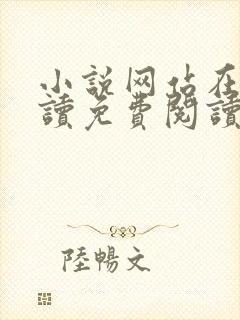 小说网站在
讀免費閱讀
陸暢文